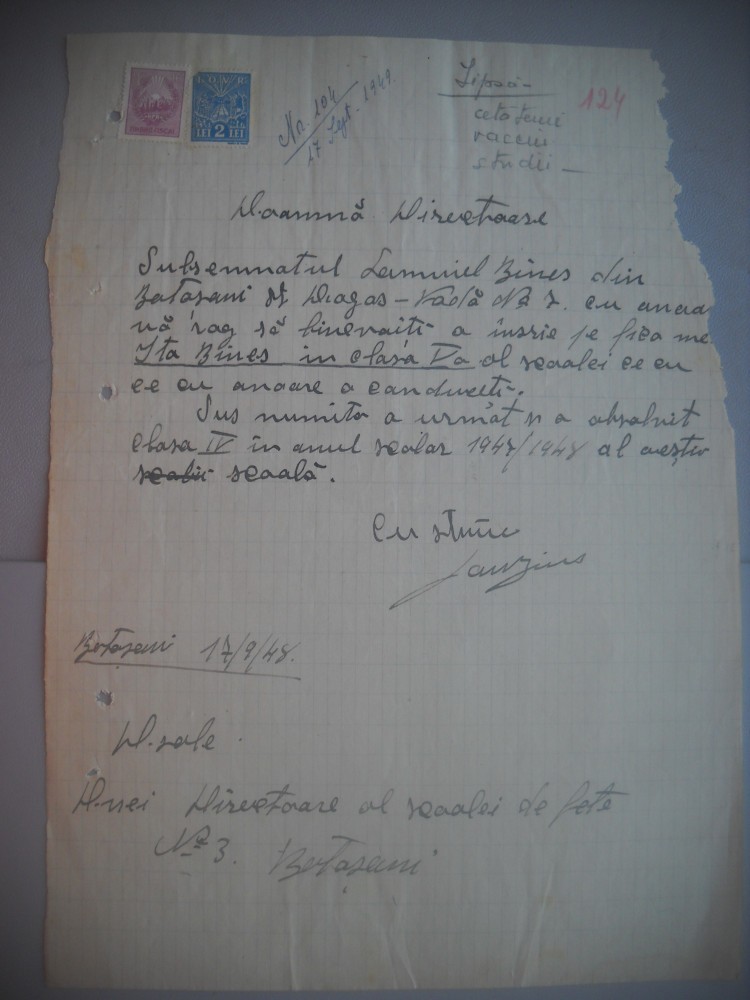 I.O.V.R.
LEI 2 LEI
Nr. 104
17 Sept. 1948.
Lipsă -
cetățenii
vaccin
studii -
124
Doamnă Directoare
Subsemnatul Samuiel Bines din
Botoșani st. Dragoș-Vodă No 7. cu onoa
vă rog să binevoiti a înscrie pe fica me
Ita Bines in clasa Va al școalei ce cu
ce cu onoare o conduceti.
Sus numita a urmat si a absolvit
clasa IV în anul școlar 1947/1948 al aceștei
școalii școală.
Cu stimă
Botoșani 17/9/48.
D.sale
D.nei Directoare al școalei de fete
No 3. Botoșani